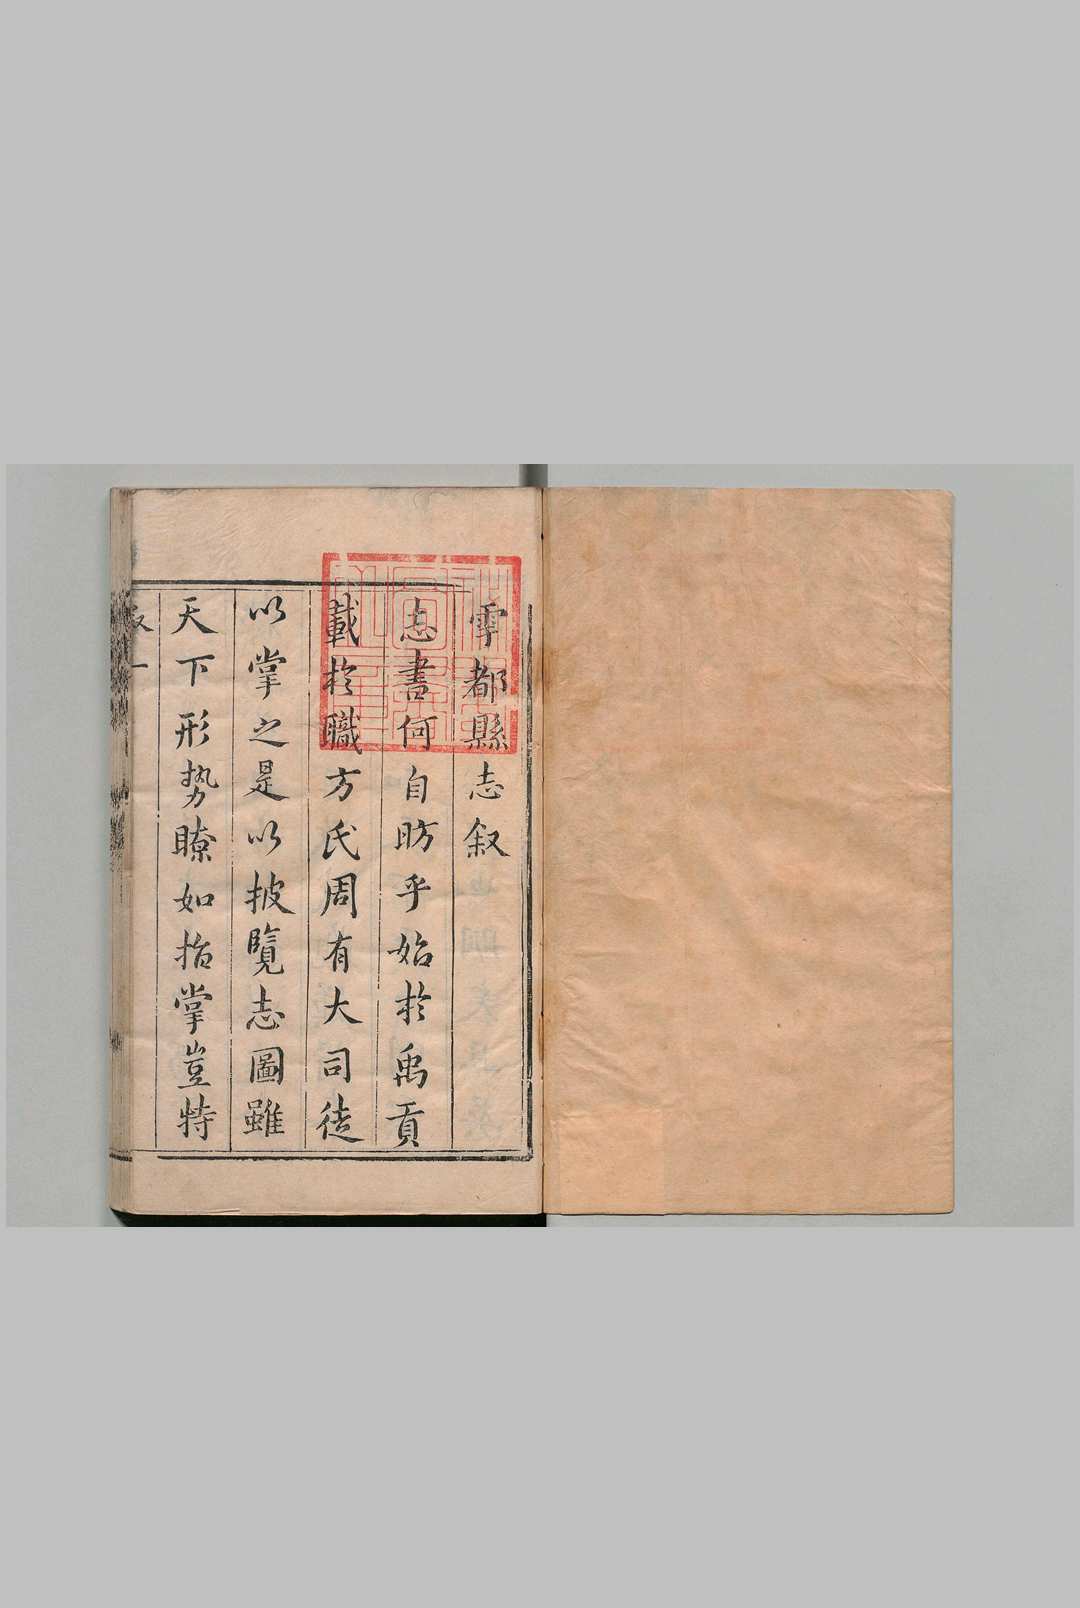 雩都縣志叙
志書何自昉乎始扵禹貢
載扵職方氏周有大司徒
以掌之是以披覽志圖雖
天下形势瞭如指掌豈特
叙一